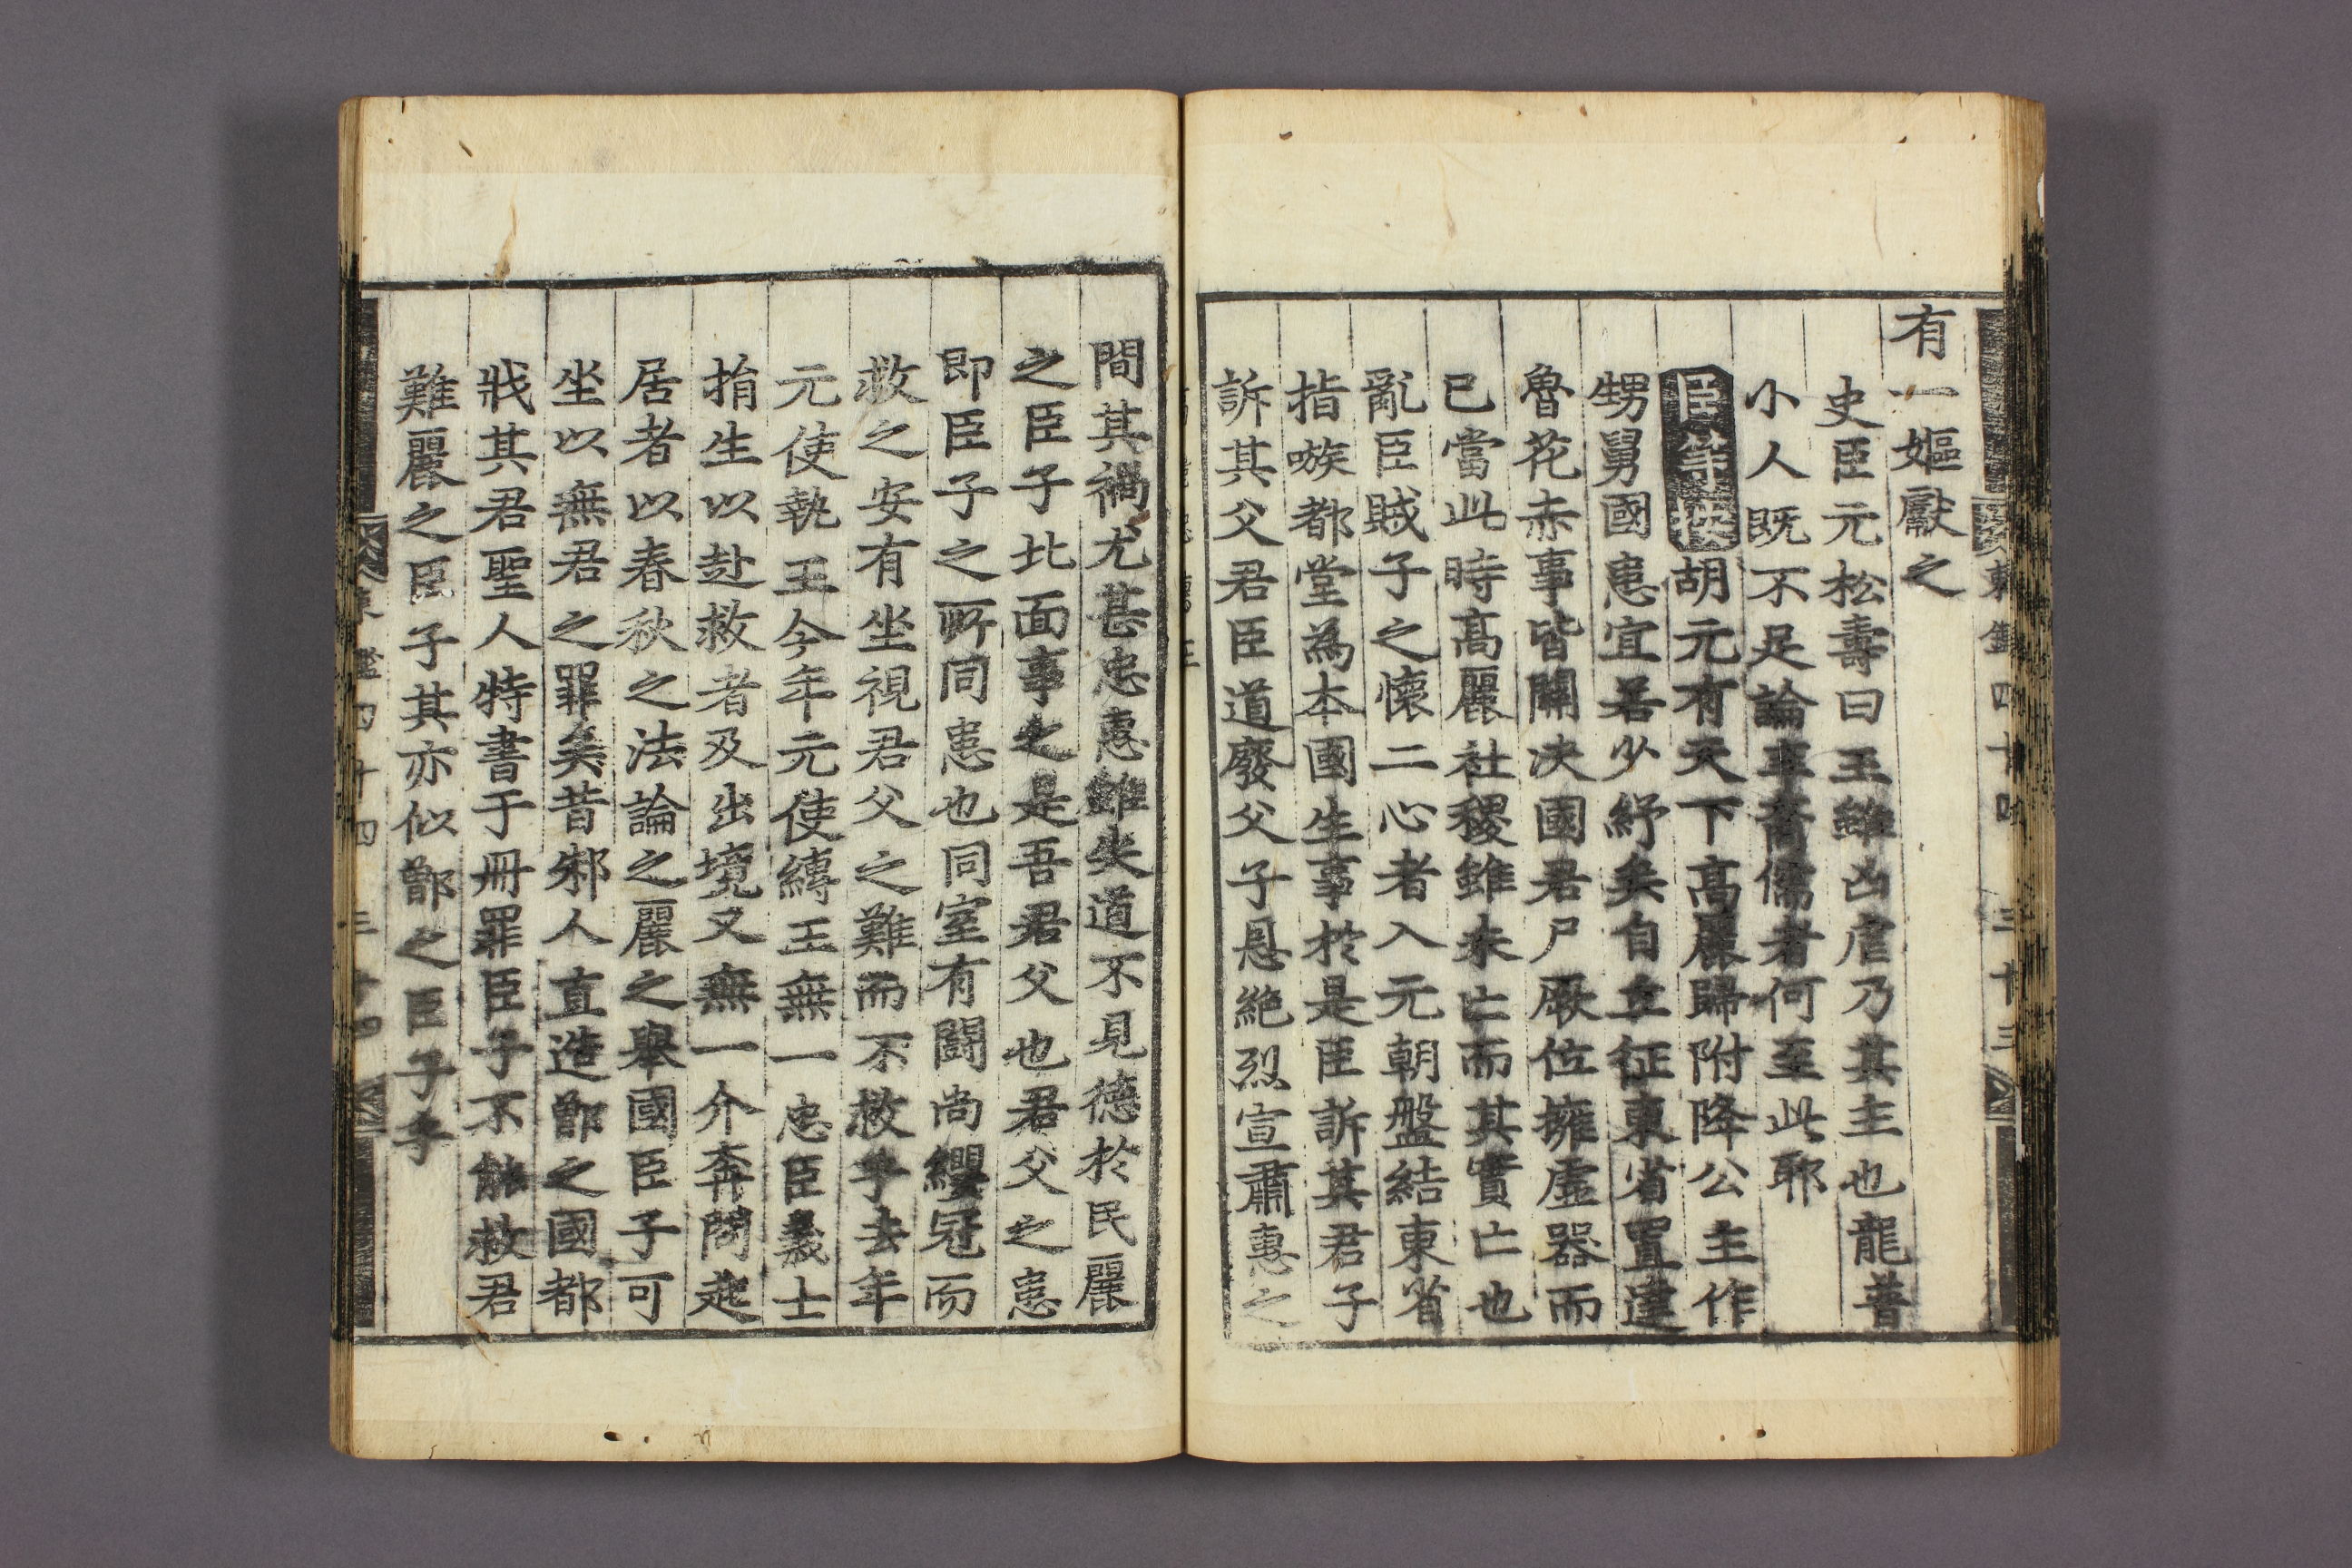 有一嫗獻之
史臣元松壽曰王雖凶虐乃其主也龍普
小人既不足論車裔儒者何至此耶
臣等按胡元有天下高麗歸附降公主作
甥舅國患宜若少紓矣自立征東省置達
魯花赤事皆關决國君尸厥位擁虛器而
已當此時高麗社稷雖未亡而其實亡也
亂臣賊子之懷二心者入元朝盤結東省
指嗾都堂為本國生事於是臣訴其君子
訴其父君臣道廢父子恩絶烈宣肅惠之
間其禍尤甚忠惠雖失道不見德於民麗
之臣子北面事之是吾君父也君父之患
即臣子之所同患也同室有鬪尚纓冠而
救之安有坐視君父之難而不救乎去年
元使執王今年元使縳王無一忠臣義士
捐生以赴救者及出境又無一介奔問起
居者以春秋之法論之麗之舉國臣子可
坐以無君之罪矣昔邾人直造鄫之國都
戕其君聖人特書于冊罪臣子不能救君
難麗之臣子其亦似鄫之臣子乎